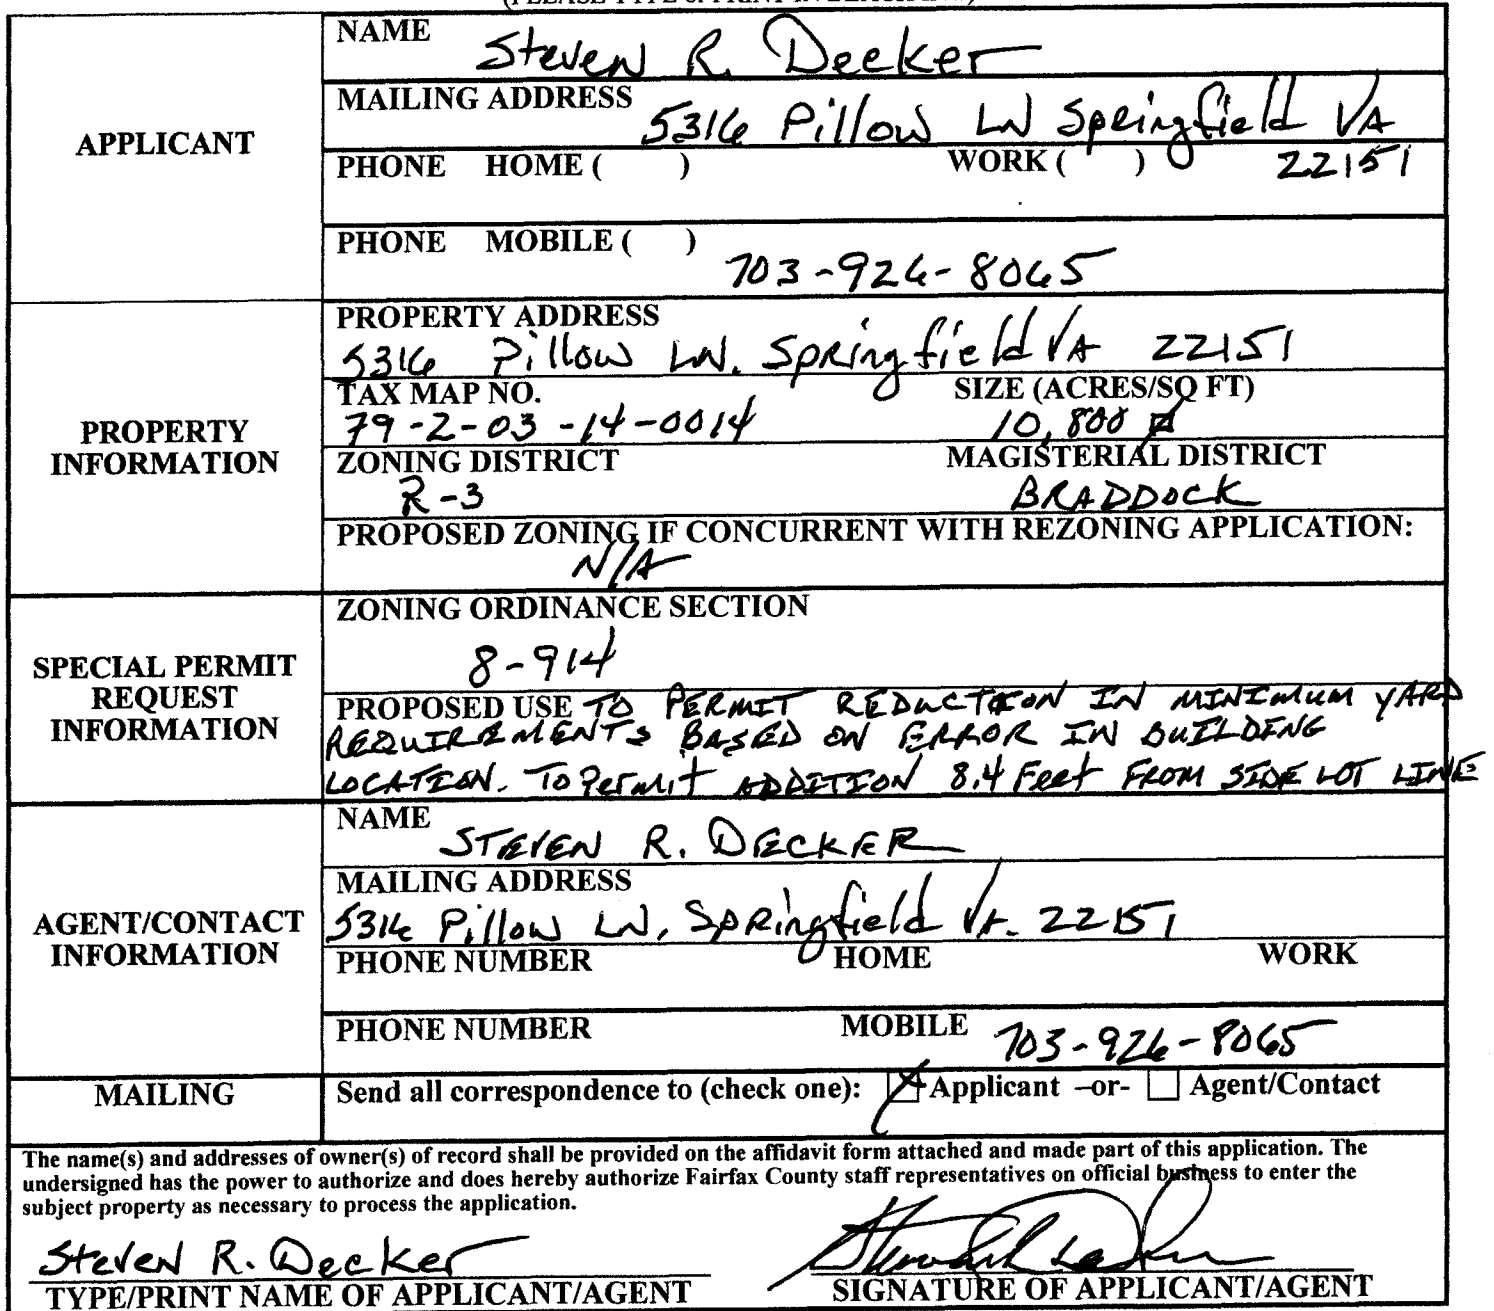 (PLEASE TYPE or PRINT IN BLACK INK)
NAME Steven R. Decker
MAILING ADDRESS
5316 Pillow LN Springfield VA
APPLICANT
PHONE HOME ( ) WORK ( ) 22151
PHONE MOBILE ( )
703-926-8065
PROPERTY ADDRESS
5316 Pillow LN. Springfield VA 22151
TAX MAP NO. SIZE (ACRES/SQ FT)
79-2-03-14-0014 10,800
PROPERTY INFORMATION
ZONING DISTRICT MAGISTERIAL DISTRICT
R-3 BRADDOCK
PROPOSED ZONING IF CONCURRENT WITH REZONING APPLICATION:
N/A
ZONING ORDINANCE SECTION
8-914
SPECIAL PERMIT
REQUEST
INFORMATION
PROPOSED USE TO PERMIT REDUCTION IN MINIMUM YARD
REQUIREMENTS BASED ON ERROR IN BUILDING
LOCATION. To Permit ADDITION 8.4 Feet FROM SIDE LOT LINE
NAME
STEVEN R. DECKER
MAILING ADDRESS
5316 Pillow LN, Springfield VA. 22151
AGENT/CONTACT
INFORMATION
PHONE NUMBER HOME WORK
PHONE NUMBER MOBILE 703-926-8065
MAILING
Send all correspondence to (check one): Applicant –or- Agent/Contact
The name(s) and addresses of owner(s) of record shall be provided on the affidavit form attached and made part of this application. The
undersigned has the power to authorize and does hereby authorize Fairfax County staff representatives on official business to enter the
subject property as necessary to process the application.
Steven R. Decker
TYPE/PRINT NAME OF APPLICANT/AGENT SIGNATURE OF APPLICANT/AGENT